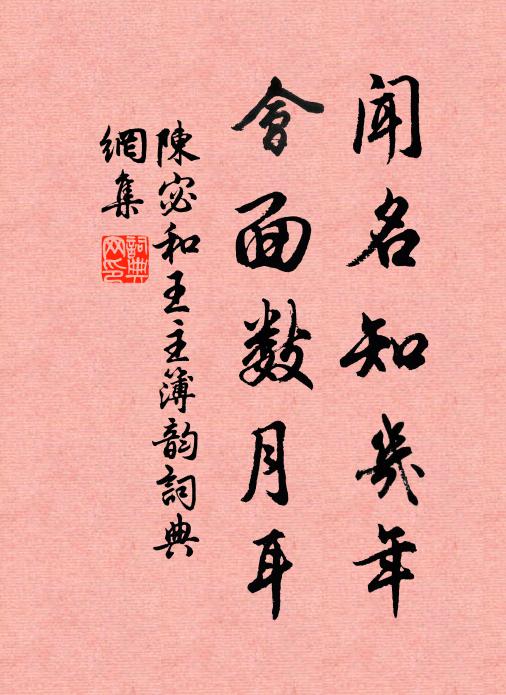 聞名知幾年
會面数月耳
陳宓和王主簿韵詞典
網集
詞典
网印